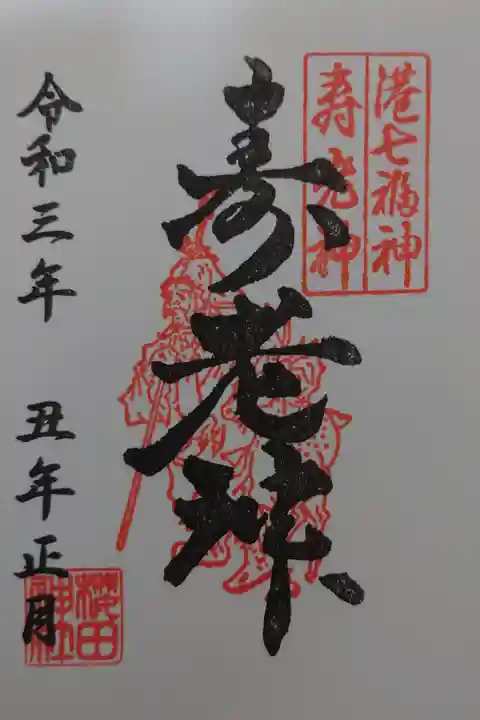 港七福神
寿老神
寿老神
令和三年 丑年正月
櫻田
神社